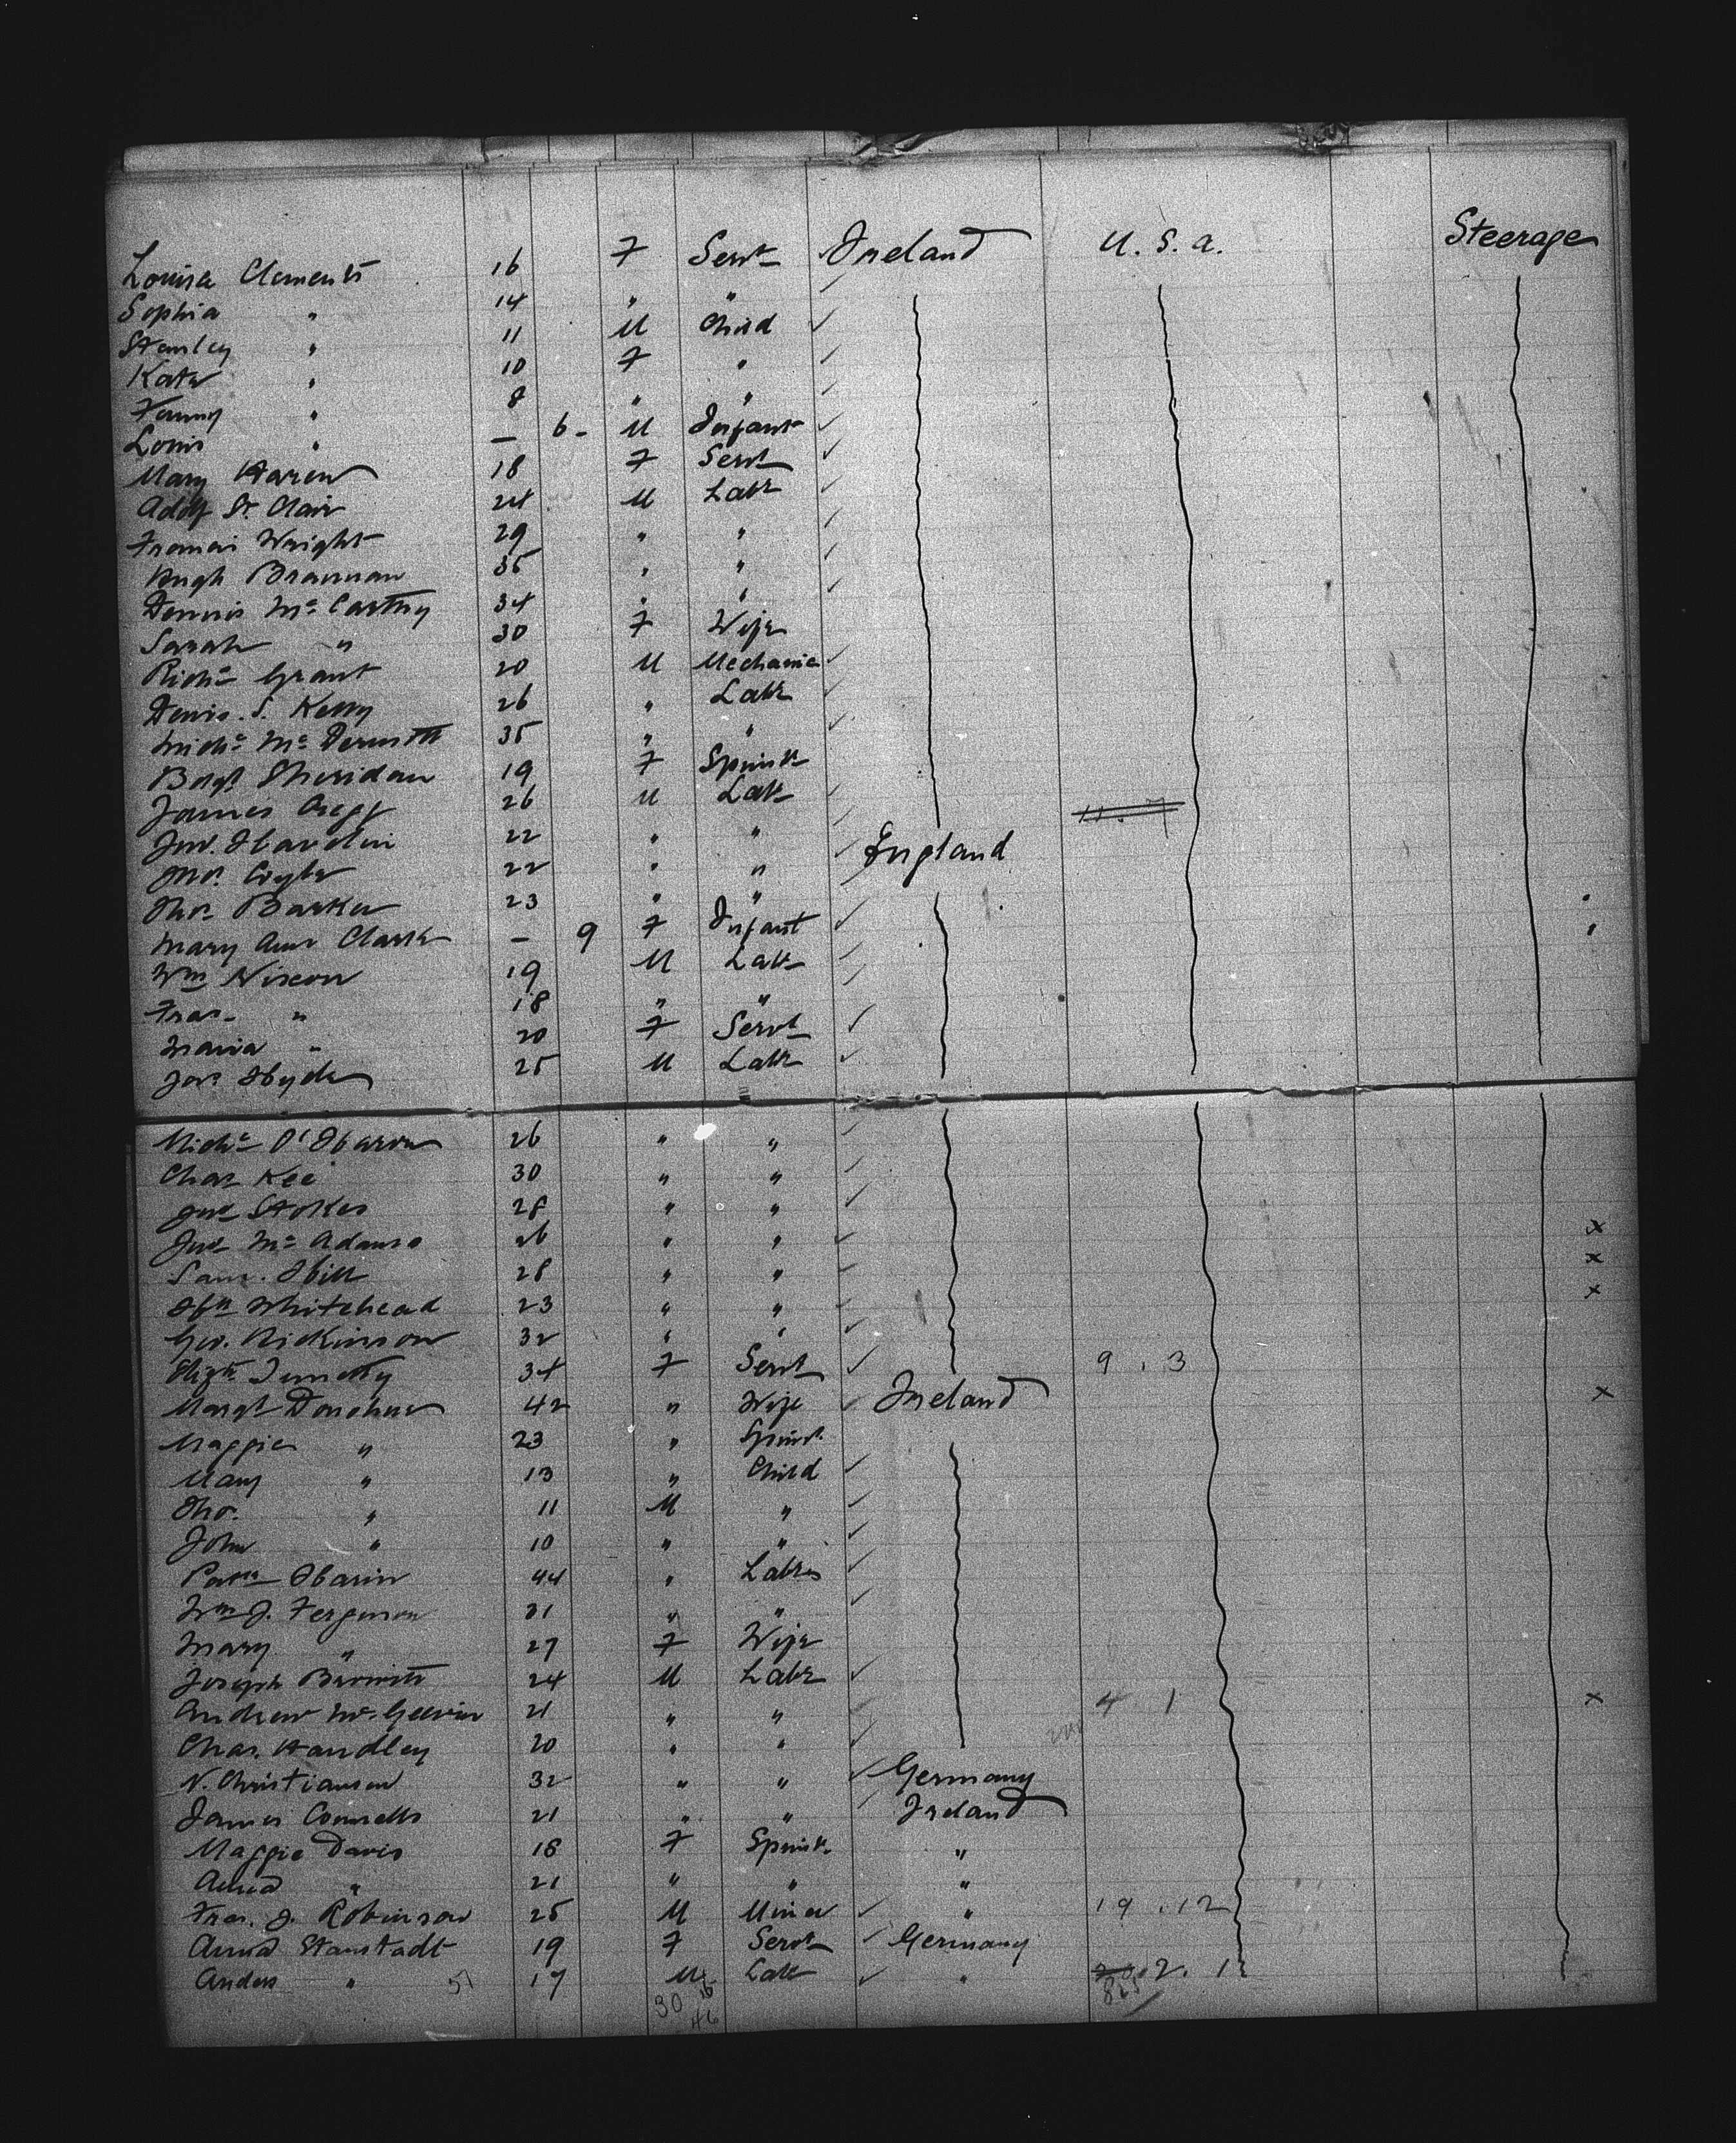 Louisa Clements 16 F Servt Ireland U.S.a. Steerage
Sophia " 14 " "
Stanley " 11 M Child
Kate " 10 F "
Fanny " 8 " "
Louis " – 6 – M Infant
Mary Haren 18 F Servt
Adolf St. Clair 24 M Labr
Francis Wright 29 " "
Hugh Brannan 35 " "
Dennis Mc Carthy 34 " "
Sarah " 30 F Wife
Richd Grant 20 M Mechanic
Denis. S. Kelly 26 " Labr
Michl Mc Dermott 35 " "
Bregt Sheridan 19 F Spinstr
James Gregg 26 M Labr
Jno. 22 " " England
Thos. 22 " "
Thos Barker 23 " "
Mary Ann Clark – 9 F Infant
Wm Nixon 19 M Labr
Fras. " 18 " "
Maria " 20 F Servt
Jos. Hyde 25 M Labr
Michl 26 " "
Chas Kee 30 " "
Jno Stokes 28 " "
Jno Mc Adams 26 " " x
Saml. Hill 28 " " x
Hy Whitehead 23 " " x
Geo. Dickinson 32 " "
Elizth 34 F Servt 9 . 3
Margt Donohue 42 " Wife Ireland x
Maggie " 23 " Spinst.
Mary " 13 " Child
Tho. " 11 M "
John " 10 " "
Patk 44 " Labrs
Wm J. Ferguson 31 " "
Mary " 27 F Wife
Joseph 24 M Labr
Andrew 21 " " 4 1 x
Chas. Handley 20 " "
N. Christiansen 32 " " Germany
James Connells 21 " " Ireland
Maggie Davis 18 F Spinstr "
" 21 " " "
Fras. J. Robinson 25 M Miner " 19 . 12
Anna Stanstadt 19 F Servt Germany
Anders " 51 17 M Labr " 2. 1
30 16
46